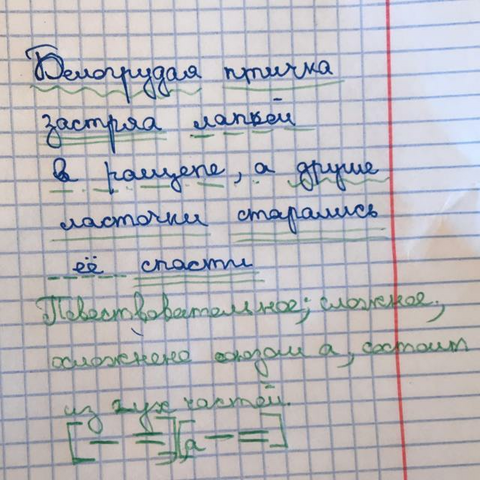 Белогрудая птичка
застряа лапкей
в ращепе, а другие
ласточки старались
её спасти
Повествовательное, сложное,
осложнено союзом а, состоит
из двух частей.
[— =], [а — =]